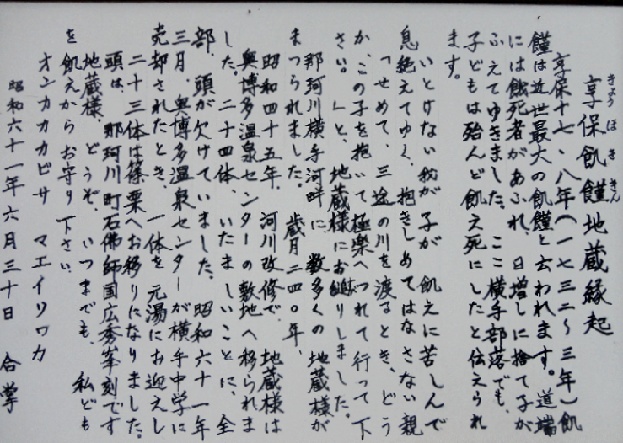 享保飢饉地蔵縁起
きょうほききん
享保十七、八年(一七三二~三年)飢
饉は近世最大の飢饉と云われます。道端
には餓死者があふれ、日増しに捨て子が
ふえてゆきました。ここ横手部落でも、
子どもは殆んど飢え死にしたと伝えられ
ます。
いとけない幼が子が 飢えに苦しんで
息絶えてゆく、抱きしめてはなさない親
つせめて、三途の川を渡るとき、どう
か、この子を抱いて極楽へつれて行って下
さい。」と、地蔵様にお縋りしました。
那珂川横手河畔に 数多くの 地蔵様が
まつられました。 歳月二四〇年、
昭和四十五年、河川改修で、地蔵様は
奥博多温泉センターの敷地へ移られま
した。二十四体、いたましいことに、全
部、頭が欠けていました。昭和六十一年
三月、奥博多温泉センターが横手中学に
売却されたとき、一体を元湯にお迎えし
二十三体は篠栗へお移りになりました。
頭は、那珂川町石佛師国広秀峯刻です
地蔵様、どうぞ、いつまでも、私ども
を飢えからお守り下さい。
オンカカカビサ マエイソワカ
昭和六十一年六月三十日 合掌